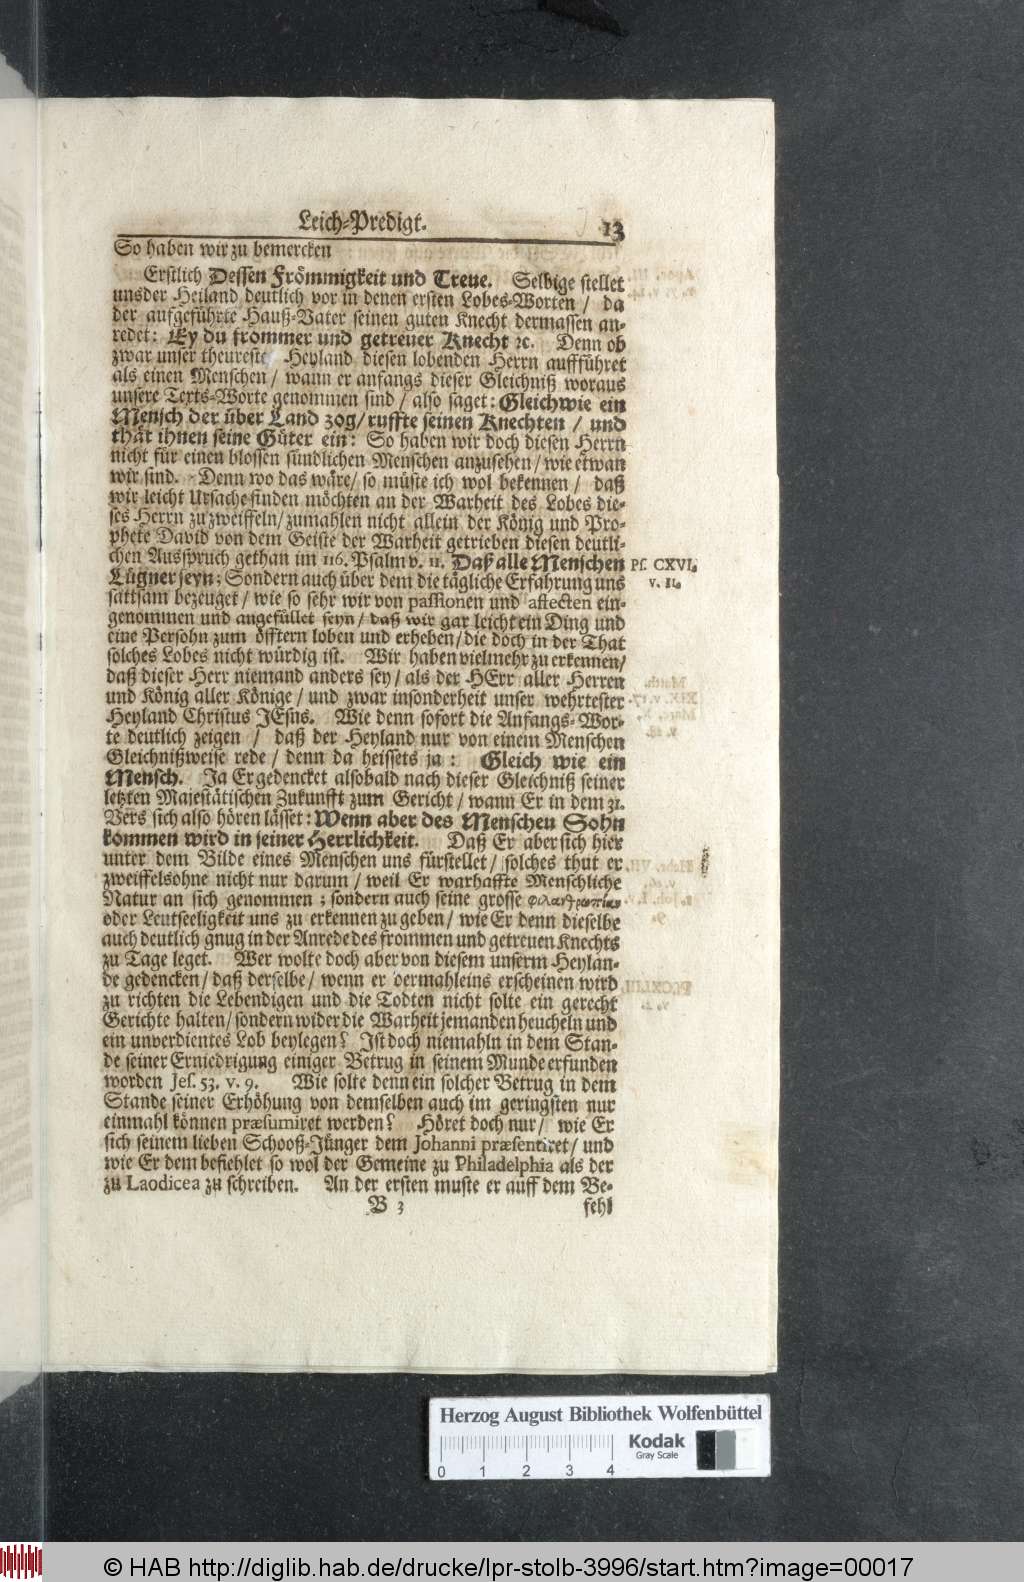 Leich-Predigt. 13
So haben wir zu bemercken
Erstlich Dessen Frömmigkeit und Treue. Selbige stellet
uns der Heiland deutlich vor in denen ersten Lobes-Worten / da
der aufgeführte Hauß-Vater seinen guten Knecht dermassen an-
redet: Ey du frommer und getreuer Knecht ꝛc. Denn ob
zwar unser theureste Heyland diesen lobenden Herrn auffführet
als einen Menschen / wann er anfangs dieser Gleichniß woraus
unsere Texts-Worte genommen sind / also saget: Gleichwie ein
Mensch der über Land zog / ruffte seinen Knechten / und
thät ihnen seine Güter ein: So haben wir doch diesen Herrn
nicht für einen blossen sündlichen Menschen anzusehen / wie etwan
wir sind. Denn wo das wäre / so müste ich wol bekennen / daß
wir leicht Ursache finden möchten an der Warheit des Lobes die-
ses Herrn zu zweiffeln / zumahlen nicht allein der König und Pro-
phete David von dem Geiste der Warheit getrieben diesen deutli-
chen Ausspruch gethan im 116. Psalm v. 11. Daß alle Menschen
Ps. CXVI.
Lügner seyn; Sondern auch über dem die tägliche Erfahrung uns
v. 11.
sattsam bezeuget / wie so sehr wir von passionen und affecten ein-
genommen und angefüllet seyn / daß wir gar leicht ein Ding und
eine Persohn zum öfftern loben und erheben / die doch in der That
solches Lobes nicht würdig ist. Wir haben vielmehr zu erkennen /
daß dieser Herr niemand anders sey / als der HErr aller Herren
und König aller Könige / und zwar insonderheit unser wehrtester
Heyland Christus JEsus. Wie denn sofort die Anfangs-Wor-
te deutlich zeigen / daß der Heyland nur von einem Menschen
Gleichnißweise rede / denn da heissets ja: Gleich wie ein
Mensch. Ja Er gedencket alsobald nach dieser Gleichniß seiner
letzten Majestätischen Zukunfft zum Gericht / wann Er in dem 31.
Vers sich also hören lässet: Wenn aber des Menschen Sohn
kommen wird in seiner Herrlichkeit. Daß Er aber sich hier
unter dem Bilde eines Menschen uns fürstellet / solches thut er
zweiffelsohne nicht nur darum / weil Er warhaffte Menschliche
Natur an sich genommen; sondern auch seine grosse φιλανθρωπίαν
oder Leutseeligkeit uns zu erkennen zu geben / wie Er denn dieselbe
auch deutlich gnug in der Anrede des frommen und getreuen Knechts
zu Tage leget. Wer wolte doch aber von diesem unserm Heylan-
de gedencken / daß derselbe / wenn er dermahleins erscheinen wird
zu richten die Lebendigen und die Todten nicht solte ein gerecht
Gerichte halten / sondern wider die Warheit jemanden heucheln und
ein unverdientes Lob beylegen? Ist doch niemahln in dem Stan-
de seiner Erniedrigung einiger Betrug in seinem Munde erfunden
worden Jes. 53. v. 9. Wie solte denn ein solcher Betrug in dem
Stande seiner Erhöhung von demselben auch im geringsten nur
einmahl können præsumiret werden? Höret doch nur / wie Er
sich seinem lieben Schooß-Jünger dem Johanni præsentiret / und
wie Er dem befiehlet so wol der Gemeine zu Philadelphia als der
zu Laodicea zu schreiben. An der ersten muste er auff dem Be-
B 3 fehl
Herzog August Bibliothek Wolfenbüttel
Kodak
Gray Scale
0 1 2 3 4
© HAB http://diglib.hab.de/drucke/lpr-stolb-3996/start.htm?image=00017